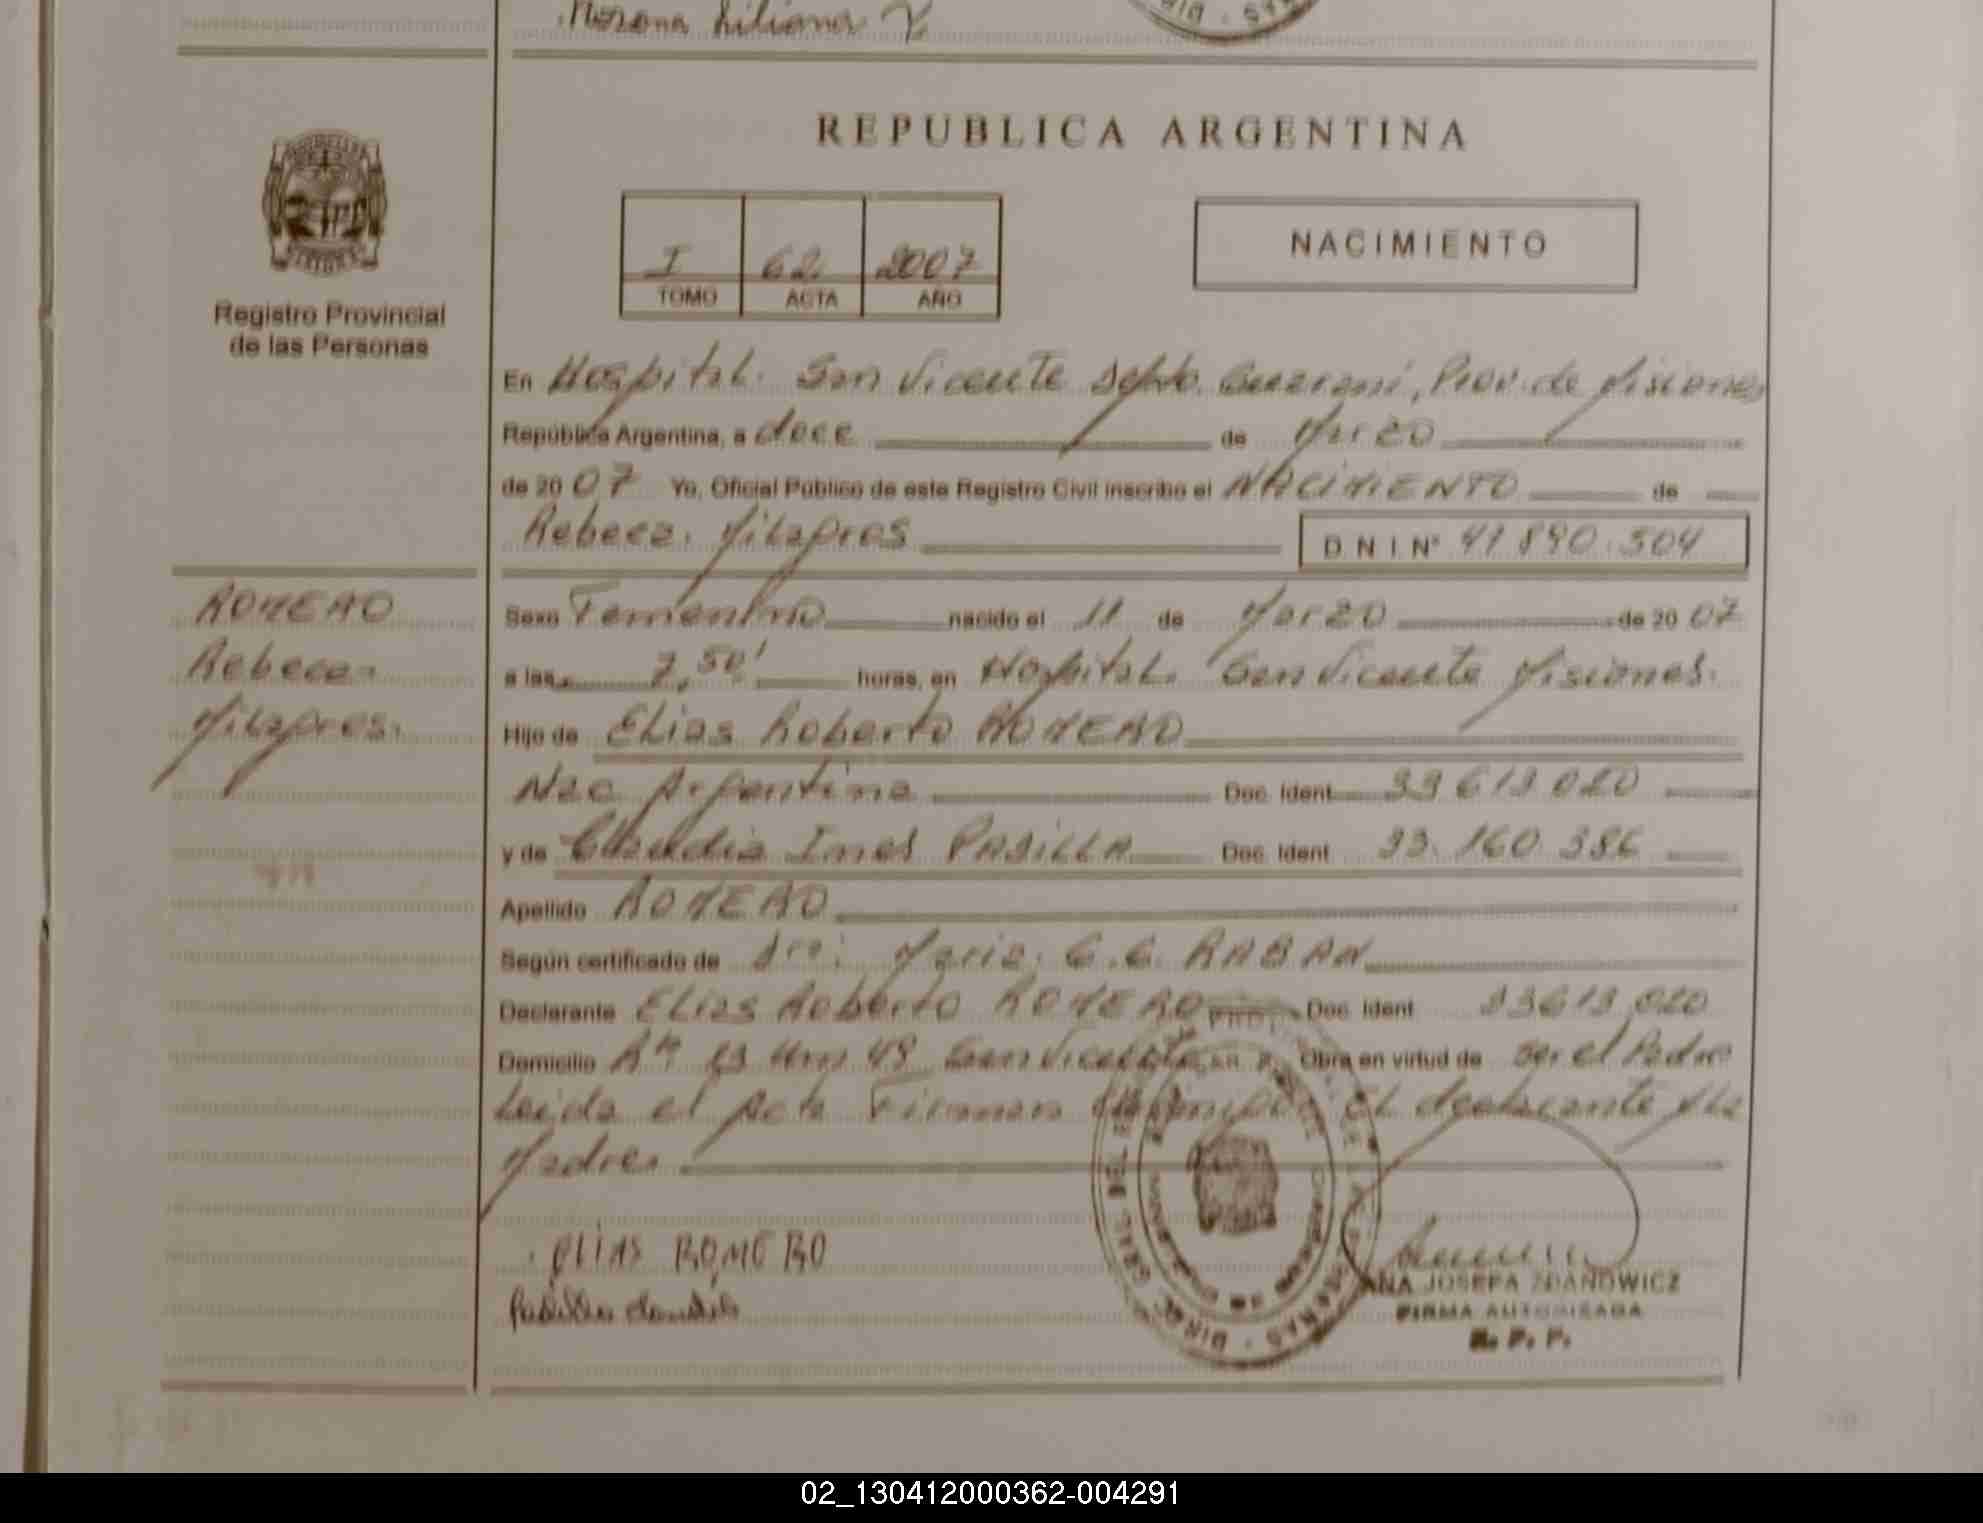 Morena Liliana
REPUBLICA ARGENTINA
NACIMIENTO
I 62 2007
TOMO ACTA AÑO
Registro Provincial
de las Personas
En Hospital. San Vicente Dpto. Guarani, Prov. de Misiones
República Argentina, a doce de Marzo
de 2007 Yo, Oficial Público de este Registro Civil inscribo el NACIMIENTO de
Rebeca. Milagros D N I Nº 41 890.504
ROMERO
Rebeca
Milagros.
Sexo Femenino nacido el 11 de Marzo de 2007
a las 7,50' horas, en Hospital. San Vicente Misiones.
Hijo de Elias Roberto ROMERO
Nac Argentina Doc. Ident. 33 613 020
y de Claudia Ines PADILLA Doc. Ident 33. 160 386
Apellido ROMERO
Según certificado de Dra: Maria. G.G. RABAN
Declarante Elias Roberto ROMERO Doc. Ident 33613 020
Domicilio Rta 13 Km 48 San Vicente Obra en virtud de ser el Padre
Leida el Acta Firman El declarante y la
Madre.
ELIAS ROMERO
Padilla Claudia
ANA JOSEFA ZDANOWICZ
FIRMA AUTORIZADA
R. P. P.
02_130412000362-004291